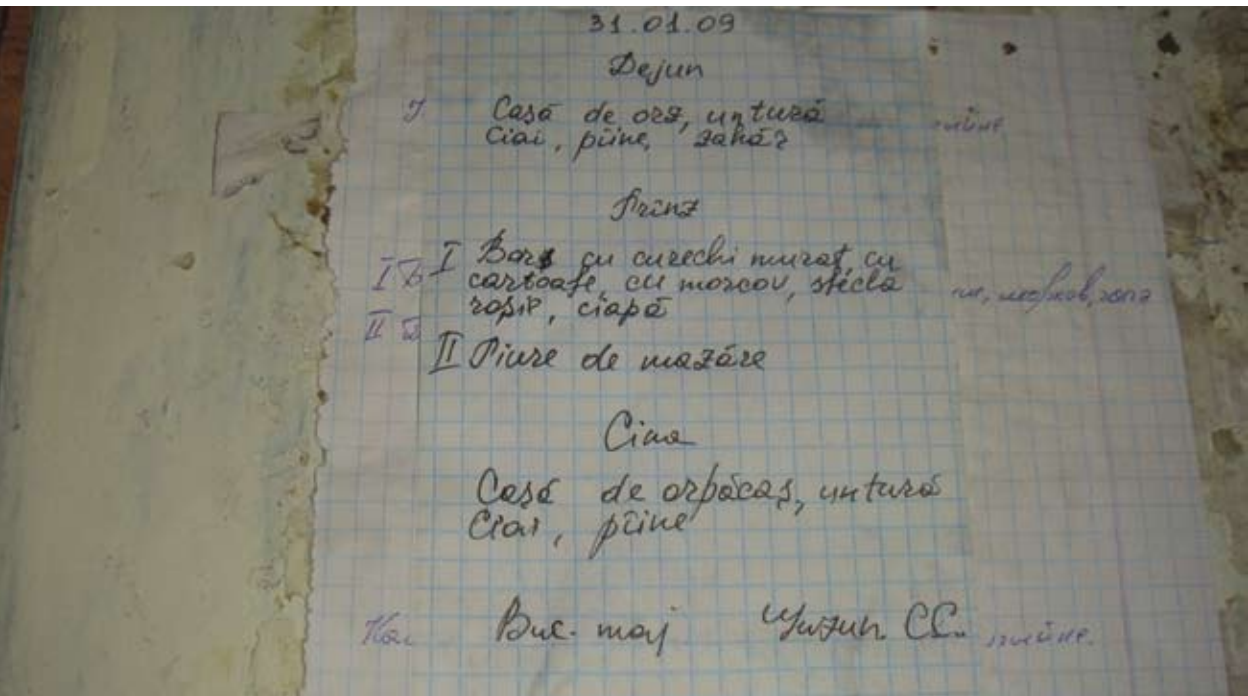 31.01.09
Dejun
Casă de orz, untură
Ciai, pîine, zahăr
Prînz
I Borș cu curechi murat cu
cartoafe, cu morcov, sfeclă
roșie, ciapă
II Piure de mazăre
Cina
Casă de arpăcaș, untură
Ciai, pîine
Buc. maj